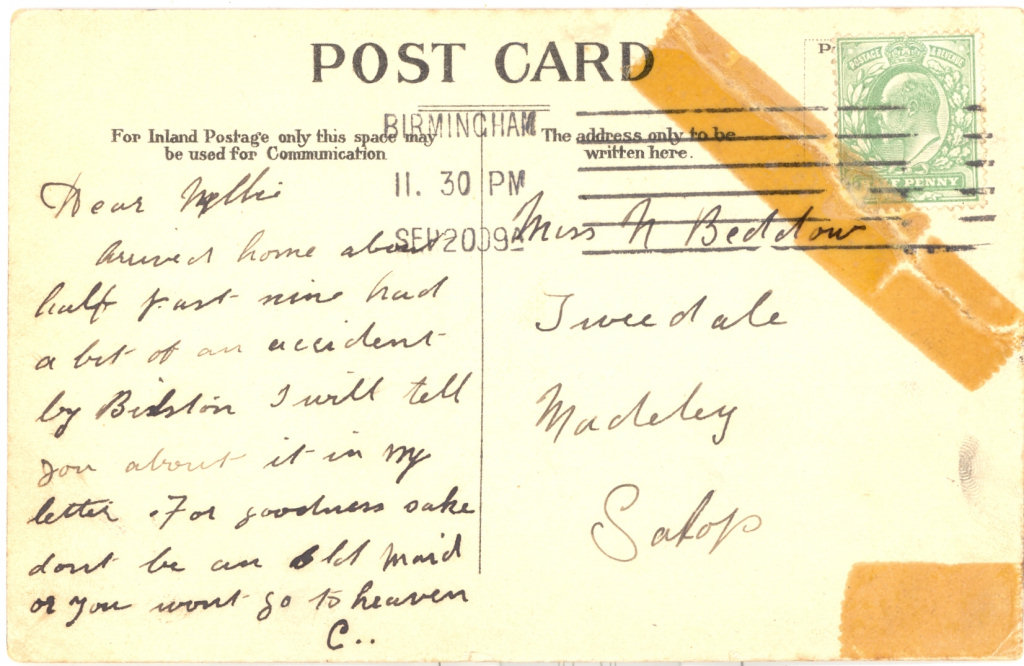 POST CARD
For Inland Postage only this space may
be used for Communication
The address only to be
written here.
BIRMINGHAM
11. 30 PM
SEP 20 09
POSTAGE & REVENUE
PENNY
Dear Nellie
Arrived home about
half past nine had
a bit of an accident
by Bilston I will tell
you about it in my
letter . For goodness sake
dont be an old maid
or you wont go to heaven
C..
Miss N Beddow
Tweedale
Madeley
Salop